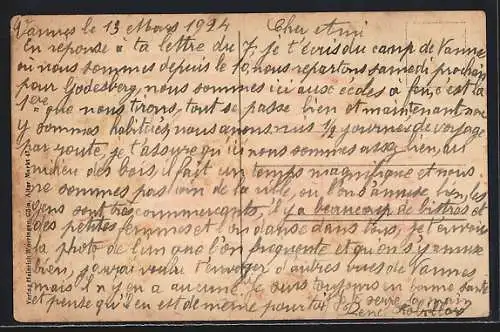 Vannes le 13 Mars 1924 Cher Ami
En réponse a ta lettre du 7, je t'écris du camp de Vanne
où nous sommes depuis le 10, nous repartons samedi prochain
pour Godesberg, nous sommes ici aux écoles a feu, c'est la
1ère que nous tirons, tout se passe bien et maintenant nous
y sommes habitués, nous avons mis 1/2 journée de voyage
par route, je t'assure qu'ici nous sommes assez bien, au
milieu des bois, il fait un temps magnifique et nous
ne sommes pas loin de la ville, ou l'on s'amuse bien, les
gens sont très commerçants, il y a beaucoup de bistros et
des petites femmes et l'on danse dans tous, je t'envoie
la photo de l'un que l'on fréquente et qu'on s'y amuse
bien, j'aurai voulu t'envoyer d'autres vues de Vannes
mais il n'y en a aucune. Je suis toujours en bonne santé
et pense qu'il en est de même pour toi. Je te serre la main
René
Verlag Heinrich Worringen, Cöln, Alter Markt